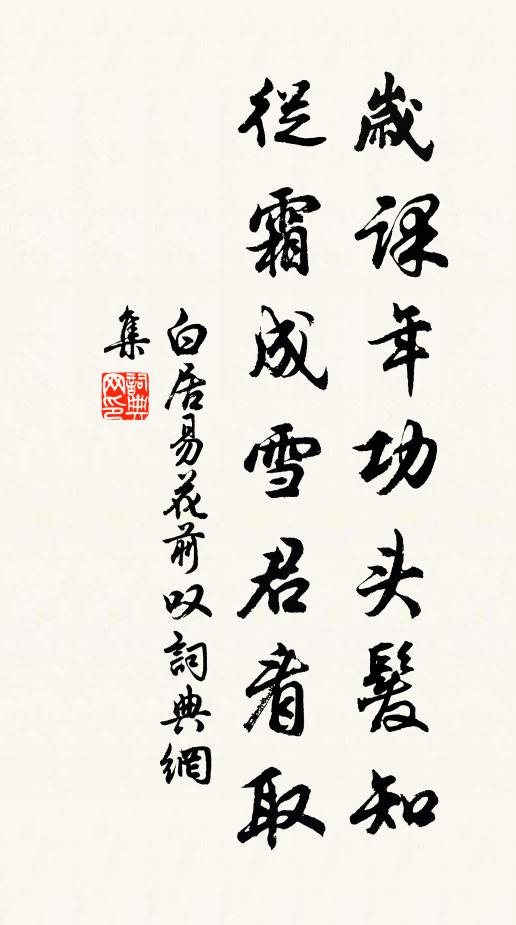 歲課年功头髮知
從霜成雪君看取
白居易花前叹詞典網
集
詞典网印